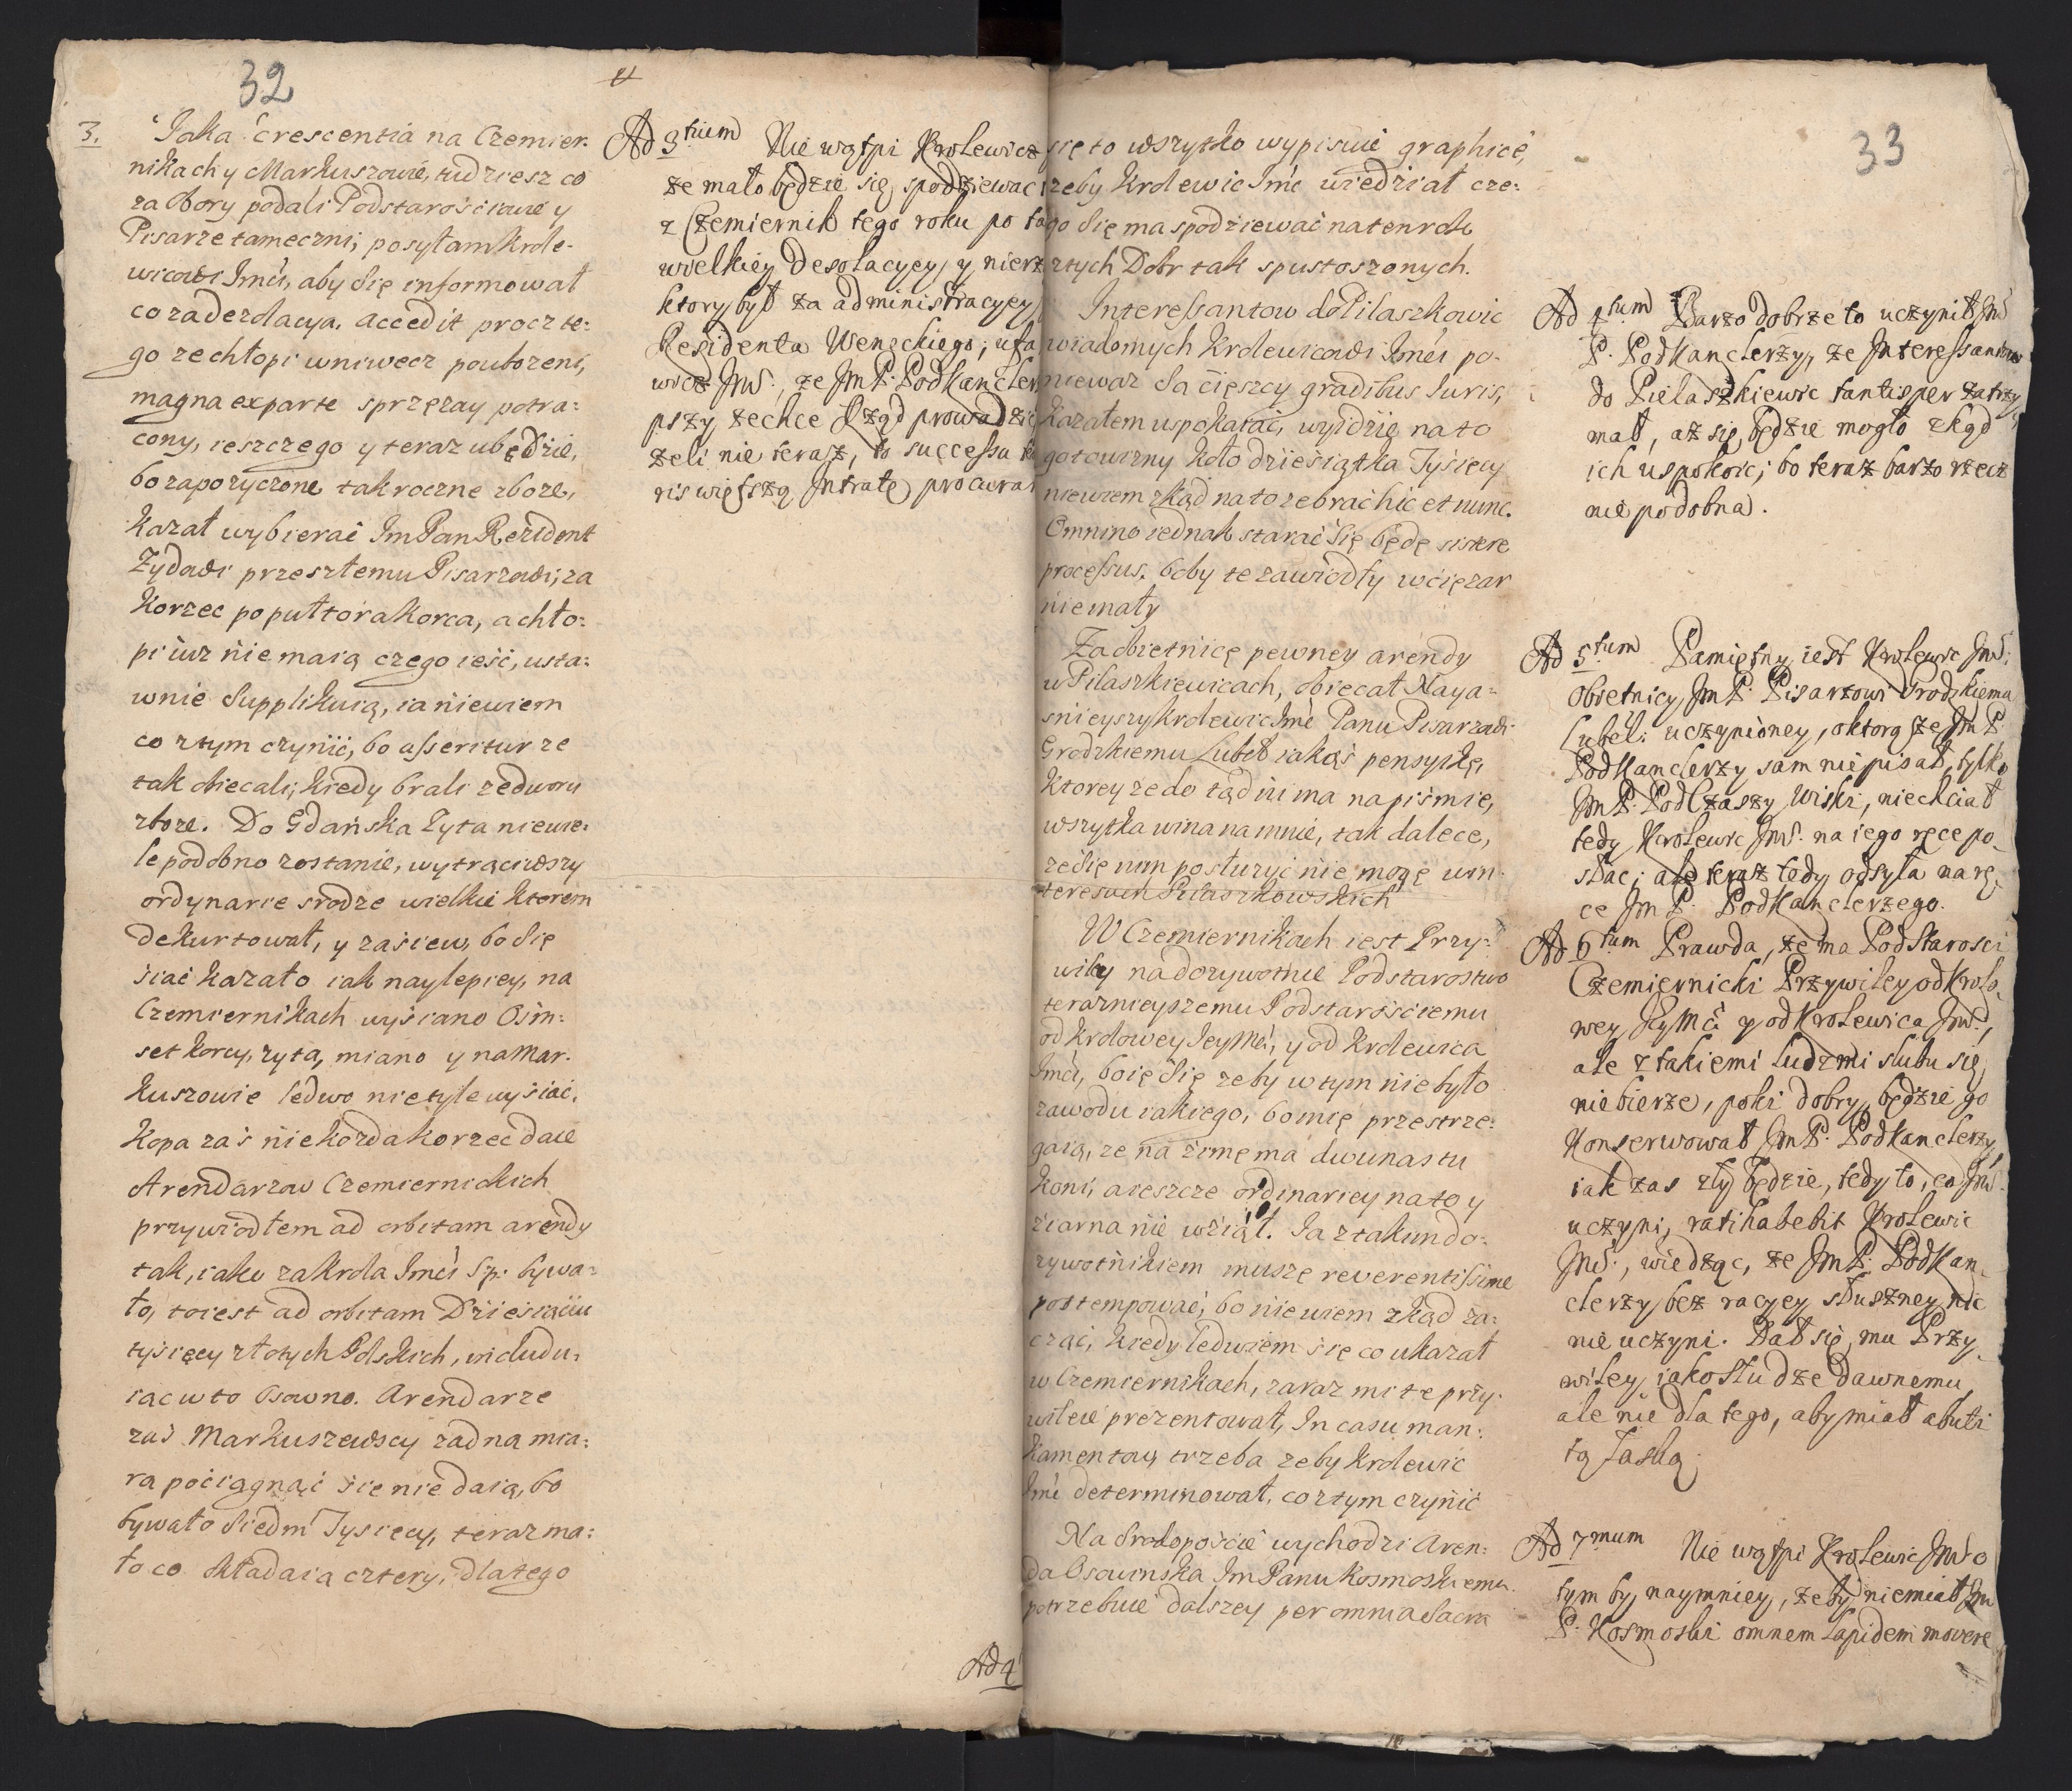 32
3. Jaka crescentia na Czemier:
nikach y Markuszowie, tudziesz co
za Obory podali Podstarościowie y
Pisarze tameczni; posyłam Krole-
wicowi Jmći, aby się informował
co za dezolacya. accedit procz te:
go ze chłopi wniwecz poubozeni,
magna ex parte sprzęzay potra:
cony, ieszczego y teraz ubędzie,
bo zapozyczone tak roczne zboze,
kazał wybierać Jm Pan Rezident
Zydowi przeszłemu Pisarzowi, za
Korzec po pułtora korca, a chło:
pi iuz nie maią czego ieść, usta:
wnie supplikuią, ia niewiem
co z tym czynić, bo asseritur ze
tak obiecali, kiedy brali ze dworu
zboze. Do Gdańska zyta niewie:
le podobno zostanie, wytrąciwszy
ordynarie srodze wielkie ktorem
dekurtował, y zasiew, bo się
siać kazało iak naylepiey, na
Czemiernikach wysiano Osm:
set korcy, zyta, miano y na Mar:
kuszowie ledwo nie tyle wysiać.
Kopa zaś nie kozda korzec daie
Arendarzow Czemiernickich
przywiodłem ad orbitam arendy
tak, iako za krola Jmći Sp: bywa:
ło, to iest ad orbitam Dziesiąciu
tysięcy złotych Polskich, includu:
iąc w to Osowno. Arendarze
zaś Markuszewscy zadną mia:
rą pociągnąć się nie daią, bo
bywało siedm Tysięcy, teraz ma:
ło co składaią cztery, dlatego
Ad 3tium Nie wątpi Krolewicz
ze mało będzie się spodziewać
z Czemiernik tego roku po ta
wielkiey desolacyey y nierz
ktory był za administracyey
Residenta Weneckiego; ufa
wicz Jmś., ze Jm P. Podkancler
pszy zechce rząd prowadzić
zeli nie terasz, to successu
ris więtszą Intratę procurar
Ad 4
33
się to wszytko wypisuie graphice,
zeby Krolewic Jmć wiedział cze:
go się ma spodziewać na ten rok
z tych Dobr tak spustoszonych.
Interessantow do Pilaszkowic
wiadomych Krolewicowi Jmći po-
niewaz są cięszcy gradibus Iuris,
kazałem uspokaiać, wyidzie na to
gotowizny koło dziesiątka Tysięcy
niewiem zkąd na to zebrać hic et nunc.
Omnino iednak starać się będę sistere
processus, boby te zawiodły w cięzar
niemały
Za obietnicę pewney arendy
w Pilaszkiewicach, obiecał Naya-
snieyszy Krolewic Jmć Panu Pisarzowi
Grodzkiemu Lubel: iakąś pensyikę,
ktorey ze do tąd ni ma na piśmie,
wszytka wina na mnie, tak dalece,
ze się nim posłuzyć nie mogę w in-
teresach Pilaszkowskich
W Czemiernikach iest Przy:
wiley na dozywotnie Podstarostwo
teraznieyszemu Podstarościemu
od Krolowey Jeymći, y od Krolewica
Jmći, boię się zeby w tym nie było
zawodu iakiego, bo mię przestrze:
gaią, ze na zimę ma dwunastu
koni, a ieszcze ordinariey na to y
ziarna nie wziął. Ia z takim do:
zywotnikiem muszę reverentissime
postempować, bo niewiem zkąd za:
cząć, kiedy ledwiem się co ukazał
w Czemiernikach, zaraz mi te przy:
wileie prezentował, In casu man:
kamentow trzeba zeby Krolewic
Jmć determinował, co z tym czynić
Na Srodopoście wychodzi Aren:
da Osowinska Jm Panu Kosmoskiemu
potrzebuie dalszey per omnia sacra
Ad 4tum Barzo dobrze to uczynił Jmś
P. Podkanclerzy, ze Interessantow
do Pielaszkiewic tantisper zatrzy,
mał, az się będzie mogło zkąd
ich uspokoić; bo terasz barzo rzecz
nie podobna.
Ad 5tum Pamiętny iest Krolewic Jmś;
obietnicy Jm P. Pisarzowi Grodzkiemu
Lubel: uczynioney, o ktorą ze Jm P.
Podkanclerzy sam nie pisał, tylko
Jm P. Podczaszy Wiski, niechciał
tedy Krolewic Jmś. na iego ręce po-
słać; ale terasz tedy odsyła na rę-
ce Jm P. Podkanclerzego.
Ad 6tum Prawda, ze ma Podstarosci
Czemiernicki Przywiley od Krolo-
wey Jeymći y od Krolewica Jmś.,
ale z takiemi ludzmi slubu się
nie bierze, poki dobry będzie go
konserwował Jm P. Podkanclerzy,
iak zas zły będzie, tedy to, co Jmś.
uczyni, ratihabebit Krolewic
Jmś., wiedząc, ze Jm P. Podkan-
clerzy bez racyey słuszney nic
nie uczyni. Dał się mu Przy-
wiley iako słudze dawnemu
ale nie dla tego, aby miał abuti
tą łaską.
Ad 7mum Nie wątpi Krolewic Jmś o
tym by naymniey, zeby niemiał Jm
P. Kosmoski omnem lapidem movere